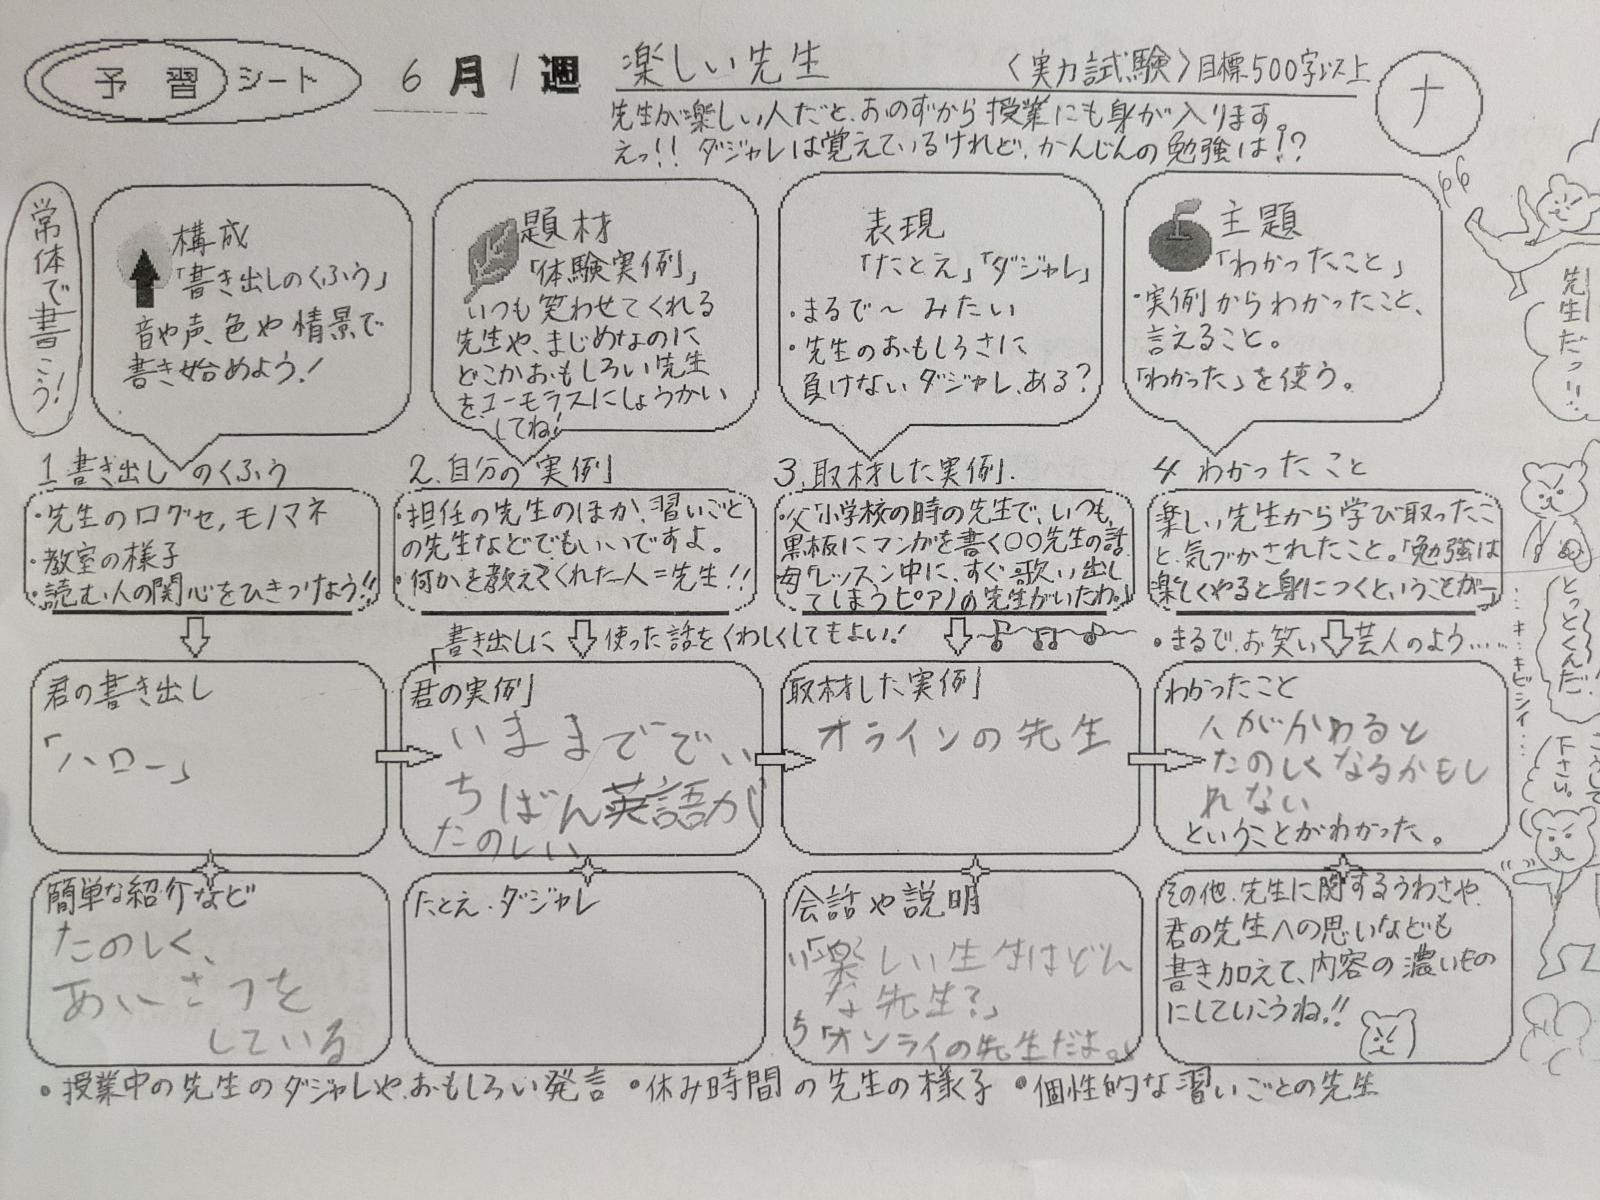 予習シート 6月1週 楽しい先生 〈実力試験〉目標500字以上 ナ
先生が楽しい人だと、おのずから授業にも身が入ります。
えっ!! ダジャレは覚えているけれど、かんじんの勉強は!?
常体で書こう!
構成
「書き出しのくふう」
音や声、色や情景で
書き始めよう!
題材
「体験実例」
いつも笑わせてくれる
先生や、まじめなのに
どこかおもしろい先生
をユーモラスにしょうかい
してね!
表現
「たとえ」「ダジャレ」
・まるで〜みたい
・先生のおもしろさに
負けないダジャレ、ある?
主題
「わかったこと」
・実例からわかったこと、
言えること。
「わかった」を使う。
先生だっ!!…
1 書き出しのくふう
・先生の口グセ,モノマネ
・教室の様子
・読む人の関心をひきつけよう!!
2.自分の実例
・担任の先生のほか、習いごと
の先生などでもいいですよ。
・何かを教えてくれた人=先生!!
3.取材した実例.
・父「小学校の時の先生で、いつも
黒板にマンガを書く〇〇先生の話
母「レッスン中に、すぐ歌い出し
てしまうピアノの先生がいたわ。」
4 わかったこと
楽しい先生から学び取ったこ
と、気づかされたこと。「勉強は
楽しくやると身につくということが〜」
書き出しに使った話をくわしくしてもよい!
・まるで、お笑い芸人のよう……
君の書き出し
「ハロー」
君の実例
いままででい
ちばん英語が
たのしい
取材した実例
オラインの先生
わかったこと
人がかわると
たのしくなるかもし
れない
ということがわかった。
…キ…キビシイ…
とっとくんだ
下さい。
簡単な紹介など
たのしく、
あいさつを
している
たとえ・ダジャレ
会話や説明
い「楽しい生生はどん
な先生?」
ち「オンライの先生だよ。」
その他、先生に関するうわさや、
君の先生への思いなども
書き加えて、内容の濃いもの
にしていこうね!!
・授業中の先生のダジャレや、おもしろい発言 ・休み時間の先生の様子 ・個性的な習いごとの先生